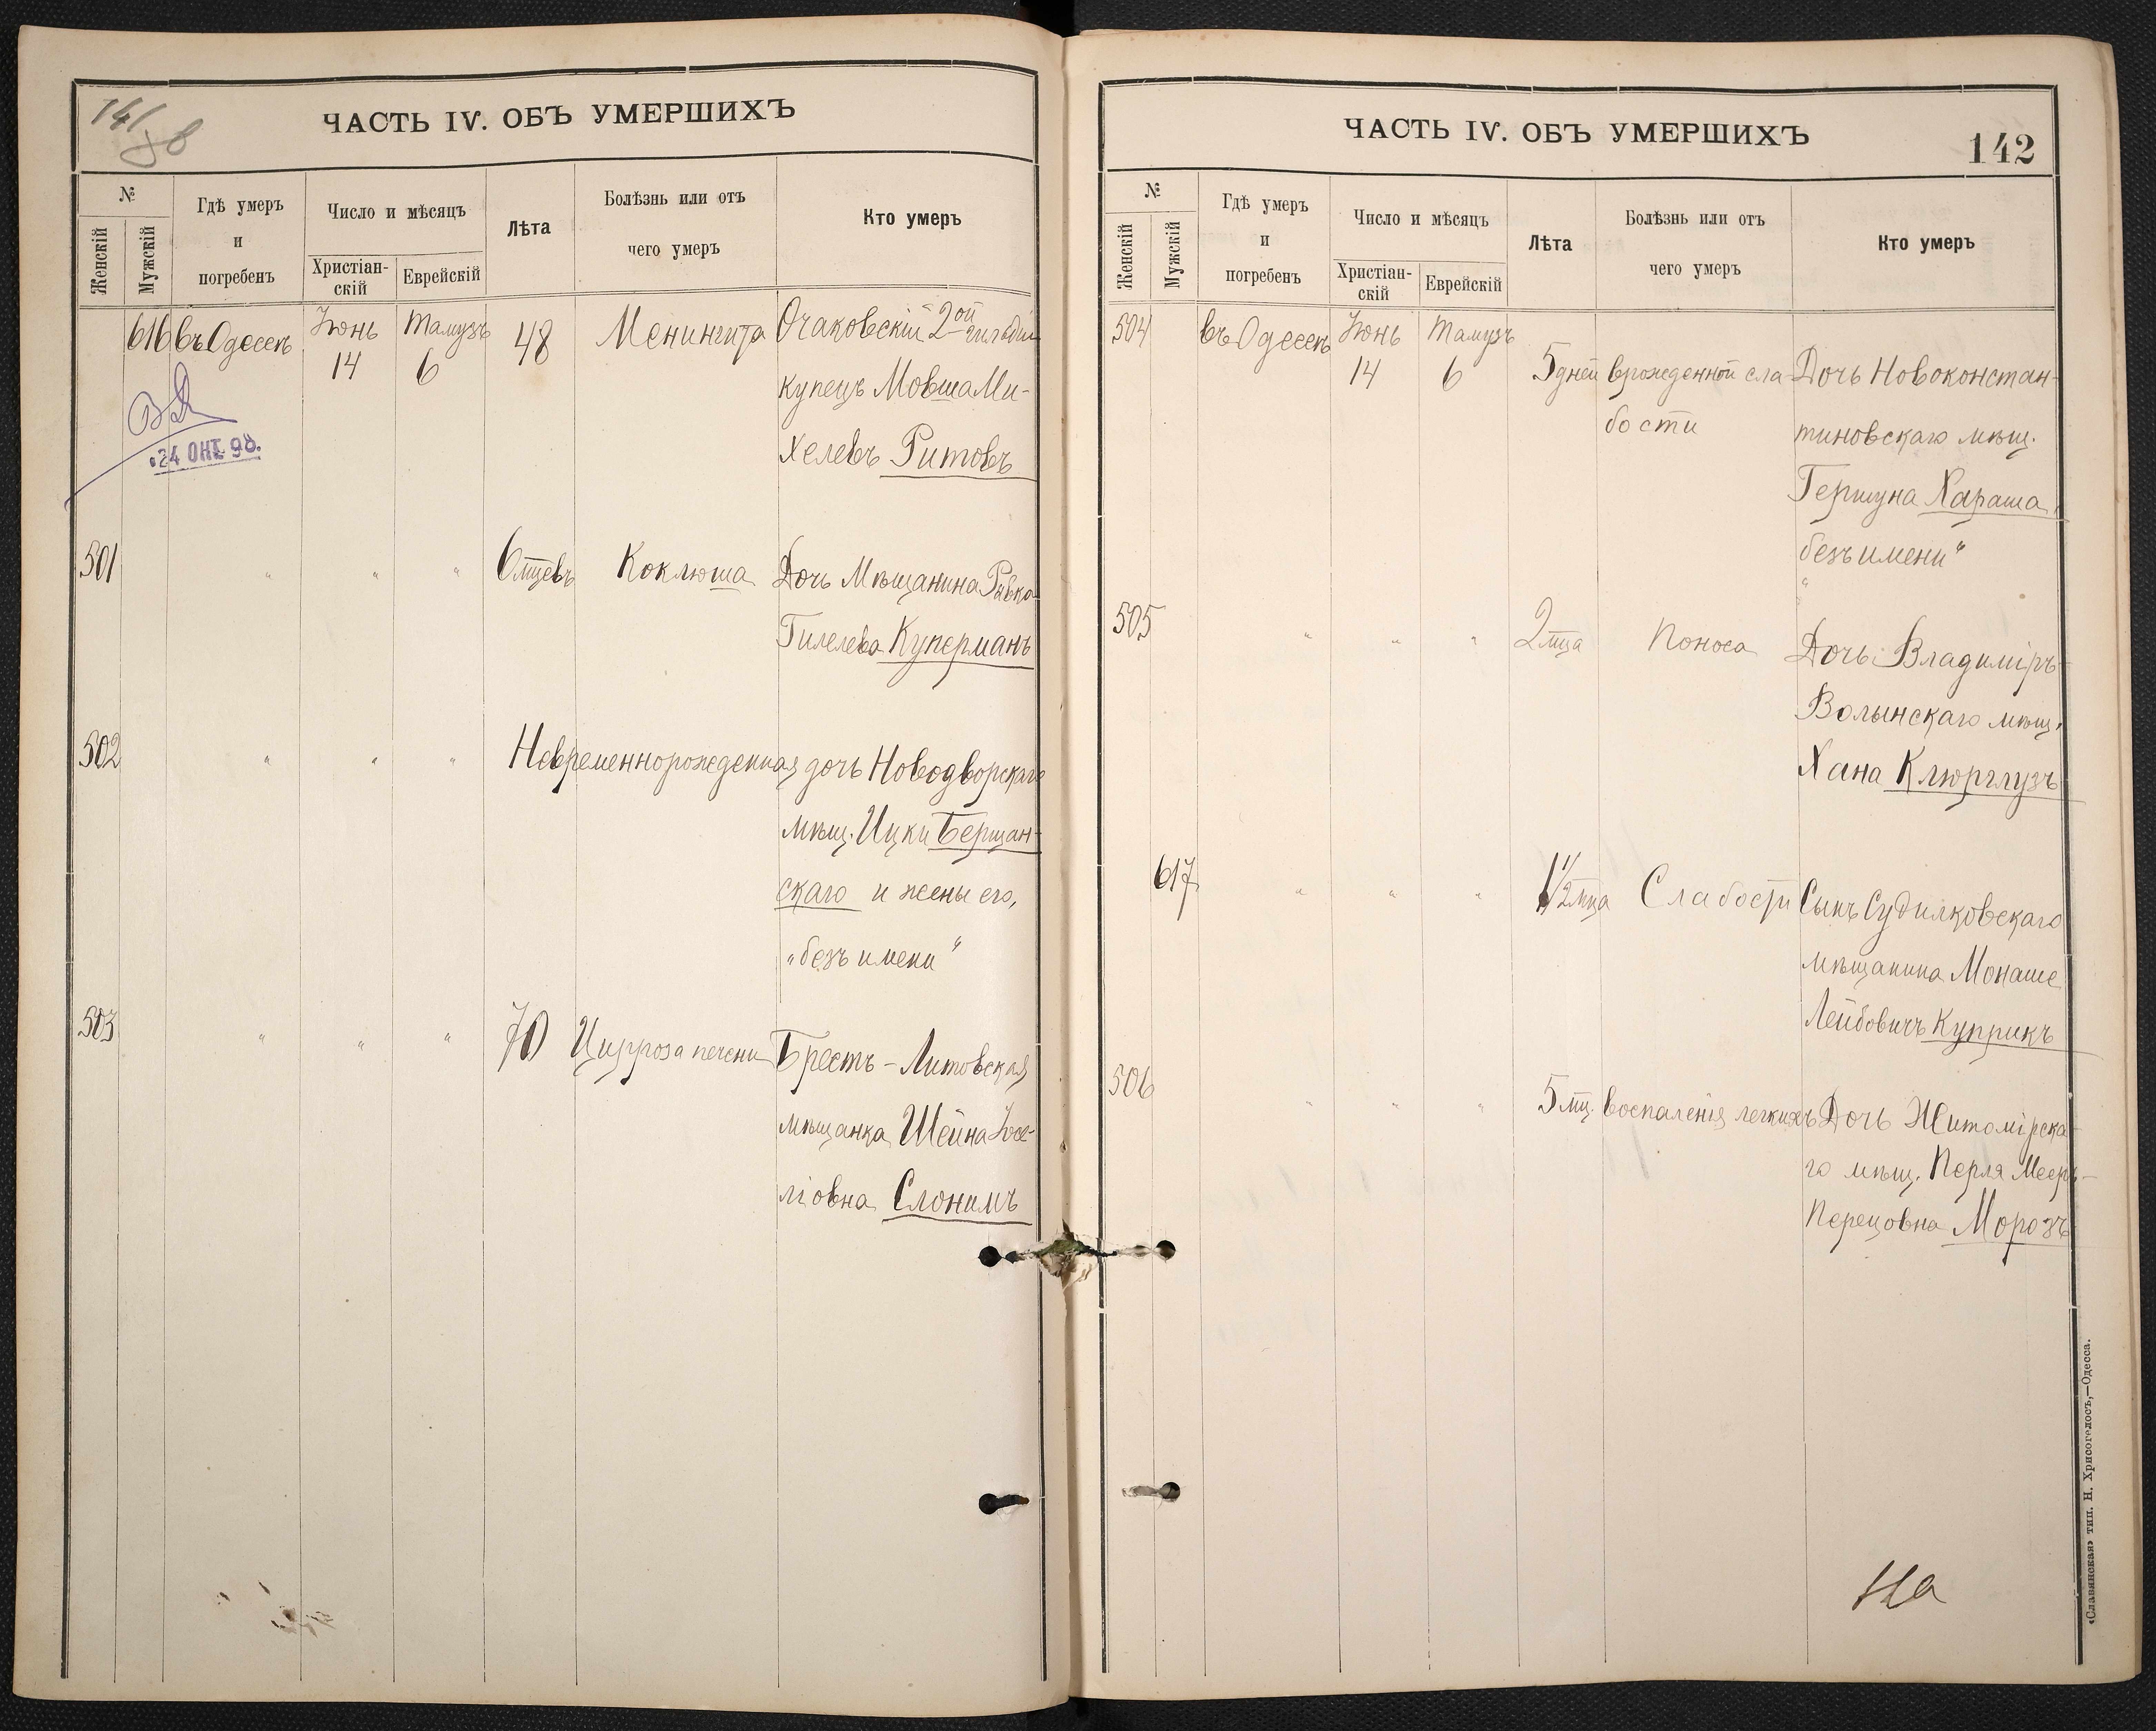 141/об
ЧАСТЬ IV. ОБЪ УМЕРШИХЪ
№
Женскій
Мужскій
Гдѣ умеръ
и
погребенъ
Число и мѣсяцъ
Христіан-
скій
Еврейскій
Лѣта
Болѣзнь или отъ
чего умеръ
Кто умеръ
616 въ Одессѣ Іюнь 14 Тамузъ 6 48 Менингита Очаковскій 2ой гильдіи
купецъ Мовша Ми-
хелевъ Ритовъ
24 ОКТ. 98.
501 " " " 6 мцевъ Коклюша Дочь Мѣщанина Рывка
Гилелева Куперманъ
502 " " " Невременнорожденная дочь Новодворскаго
мѣщ. Ицки Бершан-
скаго и жены его,
„безъ имени"
503 " " " 70 Цирроза печени Брестъ-Литовская
мѣщанка Шейна Іосе-
ліовна Слонимъ
ЧАСТЬ IV. ОБЪ УМЕРШИХЪ
142
№
Женскій
Мужскій
Гдѣ умеръ
и
погребенъ
Число и мѣсяцъ
Христіан-
скій
Еврейскій
Лѣта
Болѣзнь или отъ
чего умеръ
Кто умеръ
504 въ Одессѣ Іюнь 14 Тамузъ 6 5 дней врожденной сла- Дочь Новоконстан-
бости тиновскаго мѣщ.
Гершуна Хараша
„безъ имени"
505 " " " 2 мца Поноса Дочь Владиміръ-
Волынскаго мѣщ.
Хана Клюрглузъ
617 " " " 1 1/2 мца Слабости Сынъ Судилковскаго
мѣщанина Монаше
Лейбовичъ Куприкъ
506 " " " 5 мц. воспаленія легкихъ Дочь Житомірска-
го мѣщ. Перля Меер-
Перецовна Морозъ
На
«Славянская» тип. Н. Хрисогелосъ,—Одесса.